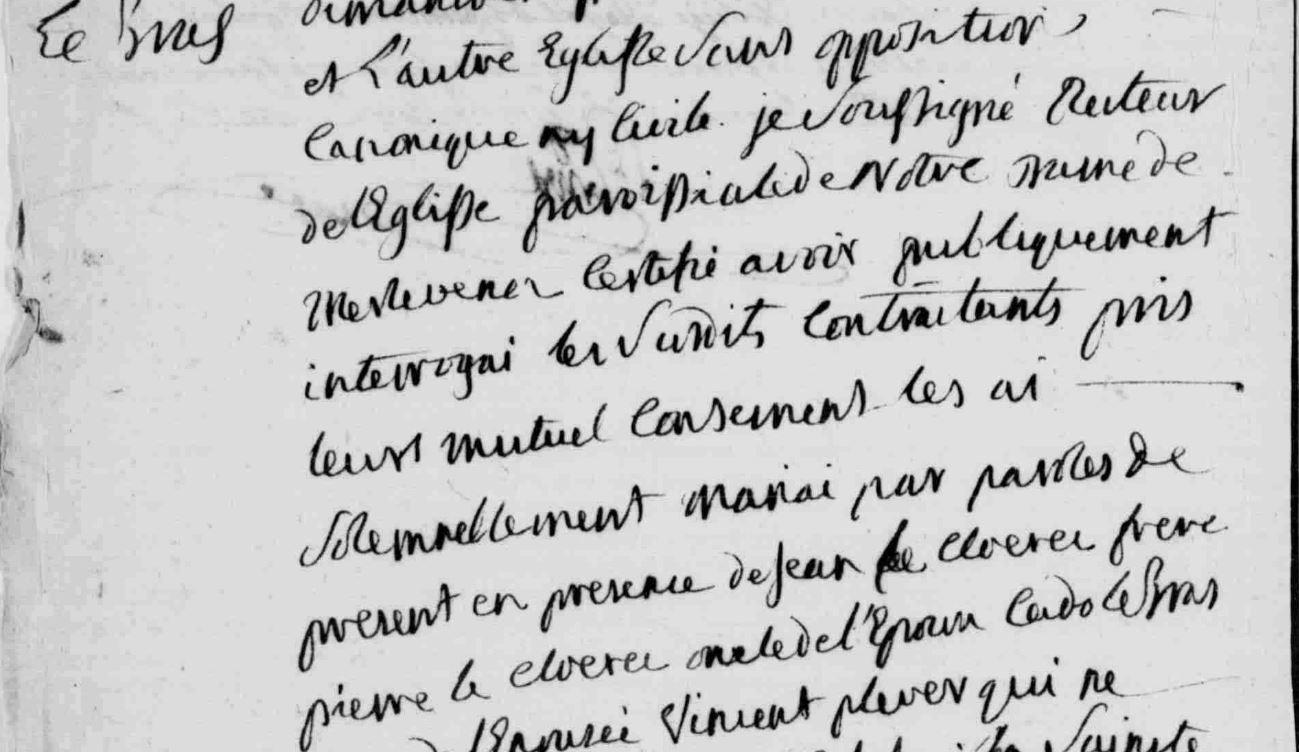 Le Bras
et l'autre Eglisse sans opposition
canonique ny civile. je soussigné Recteur
de l'Eglisse paroissiale de Notre Dame de
Merlevenez certifie avoir publiquement
interrogai les susdits contractants pris
leurs mutuel consement les ai
solemnellement mariai par paroles de
present en presence de Jean le cloerec frere
pierre le cloerec oncle de l'Epoux Cado le Bras
de l'Epousée Vincent plever qui ne